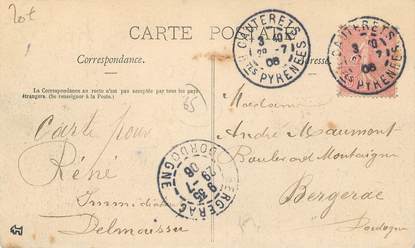 CARTE POSTALE
Correspondance.
La Correspondance au recto n'est pas acceptée par tous les pays
étrangers. (Se renseigner à la Poste.)
CAUTERETS
3 40
29 -7
06
HTES PYRÉNÉES
CAUTERETS
3
-7
06
HTES PYRÉNÉES
65
Carte pour
Réné
Immédia
Madame
André Maumont
Boulevard Montaigne
Bergerac
Dordogne
BERGERAC
8 35
29 -7
06
DORDOGNE